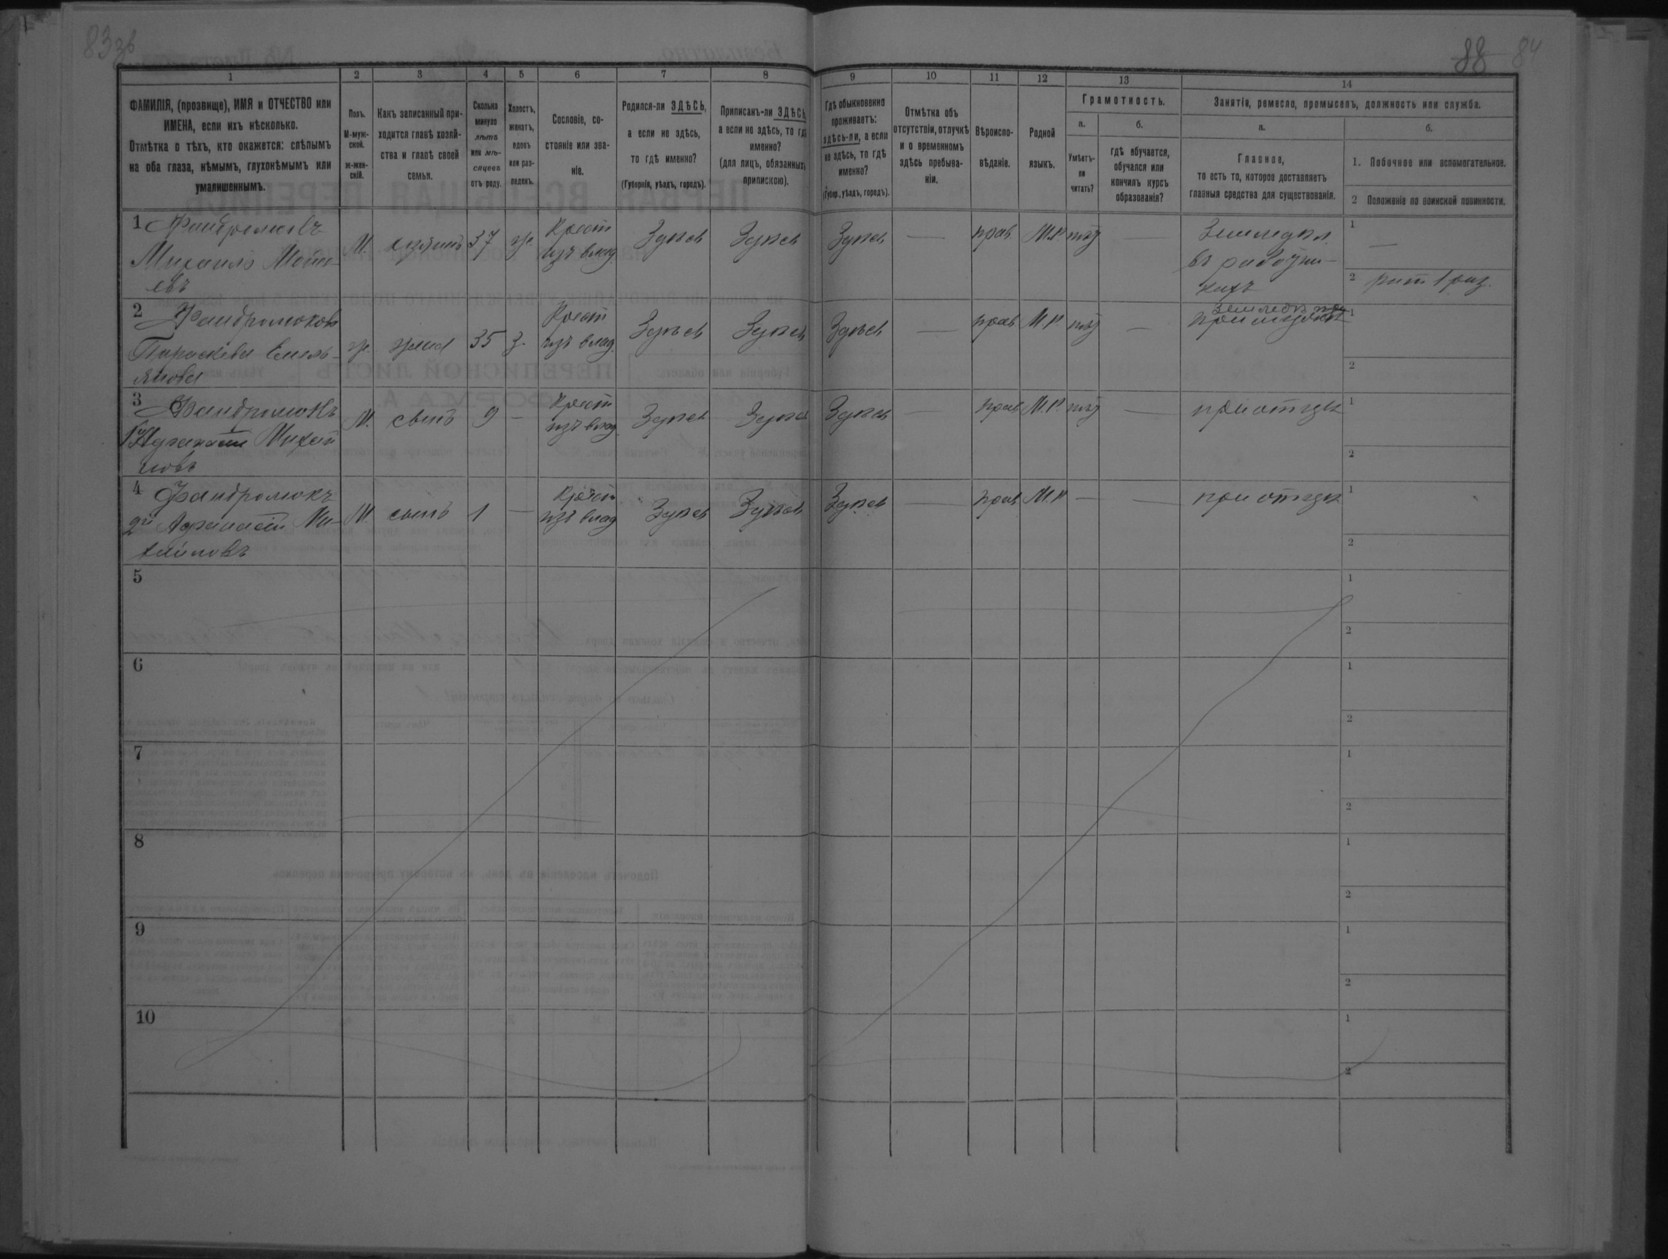 83 зв
88 84
1 2 3 4 5 6 7 8 9 10 11 12 13 14
ФАМИЛІЯ, (прозвище), ИМЯ и ОТЧЕСТВО или
ИМЕНА, если ихъ нѣсколько.
Отмѣтка о тѣхъ, кто окажется: слѣпымъ
на оба глаза, нѣмымъ, глухонѣмымъ или
умалишеннымъ.
Полъ.
М-муж-
ской.
ж-жен-
скій.
Какъ записанный при-
ходится главѣ хозяй-
ства и главѣ своей
семьи.
Сколько
минуло
лѣтъ
или мѣ-
сяцевъ
отъ роду.
Холостъ,
женатъ,
вдовъ
или раз-
веденъ.
Сословіе, со-
стояніе или зва-
ніе.
Родился-ли ЗДѢСЬ,
а если не здѣсь,
то гдѣ именно?
(Губернія, уѣздъ, городъ).
Приписанъ-ли ЗДѢСЬ,
а если не здѣсь, то гдѣ
именно?
(для лицъ, обязанныхъ
припискою).
Гдѣ обыкновенно
проживаетъ:
здѣсь-ли, а если
не здѣсь, то гдѣ
именно?
(Губер., уѣздъ, городъ).
Отмѣтка объ
отсутствіи, отлучкѣ
и о временномъ
здѣсь пребыва-
ніи.
Вѣроиспо-
вѣданіе.
Родной
языкъ.
Грамотность.
а.
Умѣетъ-
ли
читать?
б.
гдѣ обучается,
обучался или
кончилъ курсъ
образованія?
Занятіе, ремесло, промыселъ, должность или служба.
а.
Главное,
то есть то, которое доставляетъ
главныя средства для существованія.
б.
1. Побочное или вспомогательное.
2 Положеніе по воинской повинности.
1 Фандромюкъ
Михаилъ М. хозяинъ 37 ж. Крест изъ влад. Здѣсь Здѣсь Здѣсь — прав М.р. нѣт — Земледѣл 1 —
въ работни-
кахъ 2 рат 1 раз.
2 Фандромюкова
Параскева Емель- ж. жена 35 з. Крест изъ влад. Здѣсь Здѣсь Здѣсь — прав М.р. нѣт — при мужѣ 1
янова 2
3 Фандромюкъ
Михай- М. сынъ 9 — Крест изъ влад. Здѣсь Здѣсь Здѣсь — прав М.р. нѣт — при отцѣ 1
ловъ 2
4 Фандромюкъ
2й Афанасій Ми- М. сынъ 1 — Крест изъ влад Здѣсь Здѣсь Здѣсь — прав М.р. — — при отцѣ 1
хайловъ 2
5 1
2
6 1
2
7 1
2
8 1
2
9 1
2
10 1
2